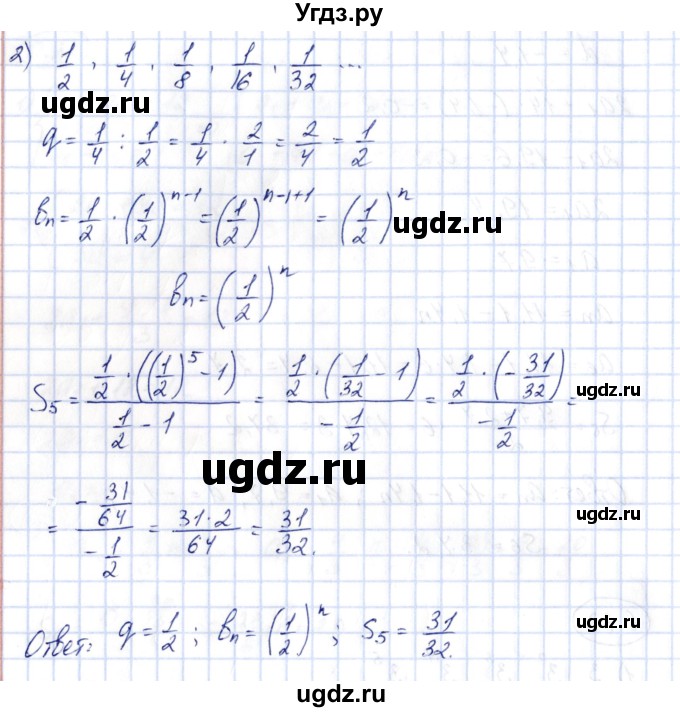 Угдз.ру
2) 1/2, 1/4, 1/8, 1/16, 1/32 ...
ugdz.ru ugdz.ru
q = 1/4 : 1/2 = 1/4 · 2/1 = 2/4 = 1/2
bn = 1/2 · (1/2)^(n-1) = (1/2)^(n-1+1) = (1/2)^n
ugdz.ru
bn = (1/2)^n
S5 = (1/2 · ((1/2)^5 - 1))/(1/2 - 1) = (1/2 · (1/32 - 1))/(-1/2) = (1/2 · (-31/32))/(-1/2) =
ugdz.ru
ugdz.ru
= (-31/64)/(-1/2) = (31·2)/64 = 31/32.
ugdz.ru
Ответ: q = 1/2; bn = (1/2)^n; S5 = 31/32.
ugdz.ru
ugdz.ru